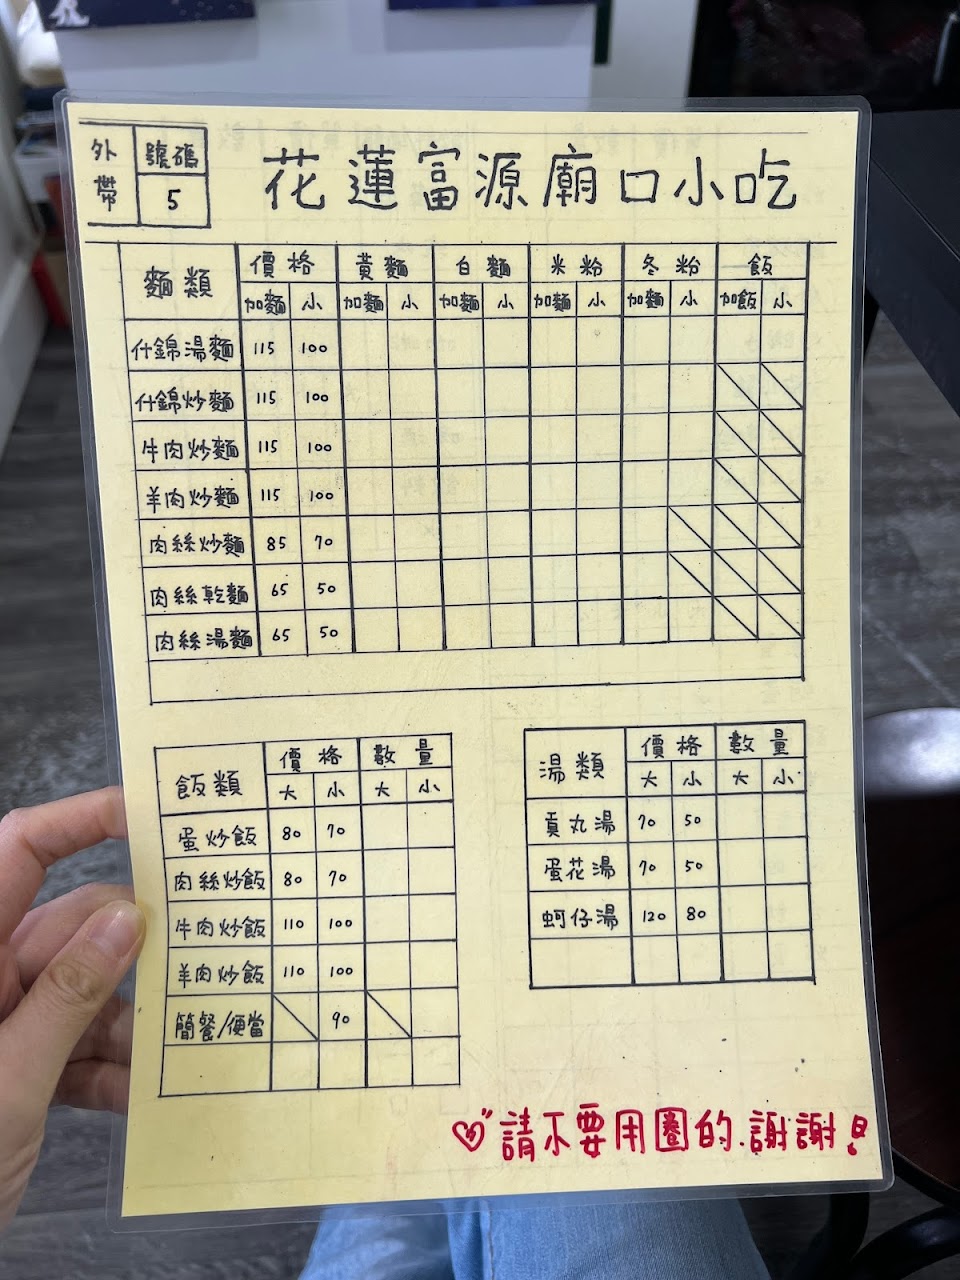 外帶
號碼
5
花蓮富源廟口小吃
麵類 價格 黃麵 白麵 米粉 冬粉 飯
加麵 小 加麵 小 加麵 小 加麵 小 加麵 小 加飯 小
什錦湯麵 115 100
什錦炒麵 115 100
牛肉炒麵 115 100
羊肉炒麵 115 100
肉絲炒麵 85 70
肉絲乾麵 65 50
肉絲湯麵 65 50
飯類 價格 數量
大 小 大 小
蛋炒飯 80 70
肉絲炒飯 80 70
牛肉炒飯 110 100
羊肉炒飯 110 100
簡餐/便當 90
湯類 價格 數量
大 小 大 小
貢丸湯 70 50
蛋花湯 70 50
蚵仔湯 120 80
請不要用圈的.謝謝!